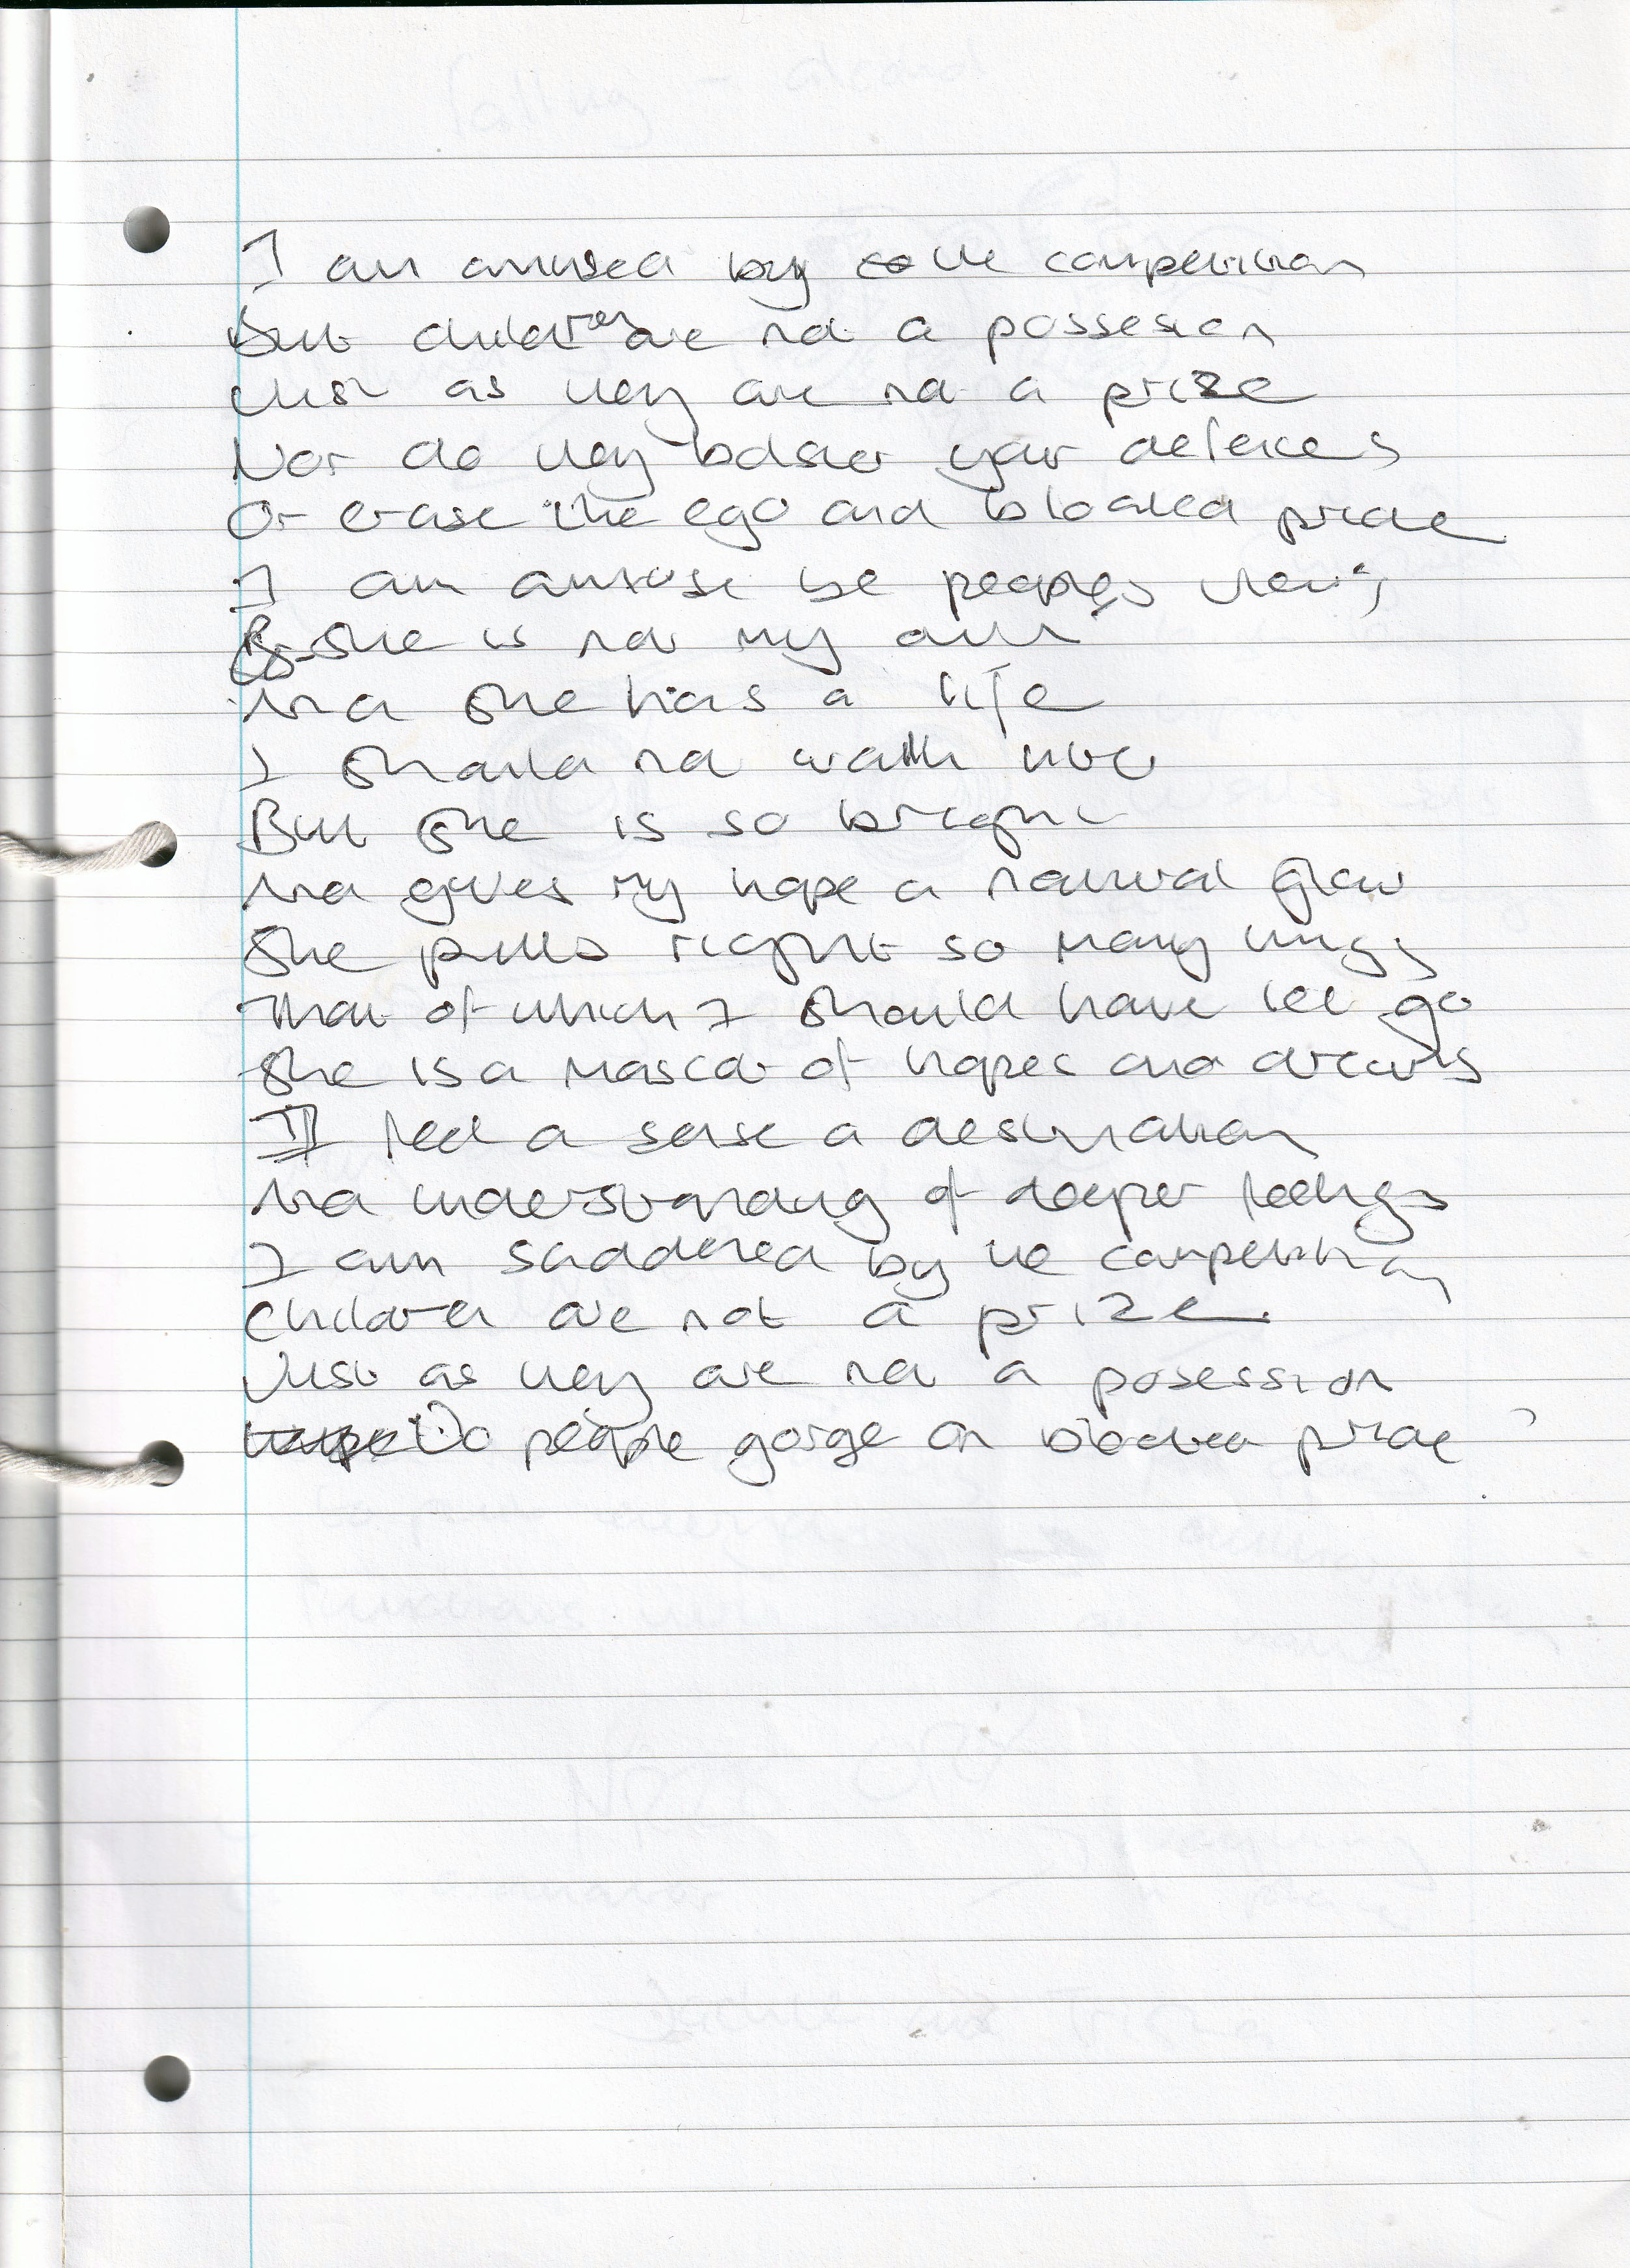 I am amused by the competition
But children are not a possesion
Just as they are not a prize
Nor do they bolster your defences
Or erase the ego and bloated pride
I am amuse be peoples views
She is not my own
And she has a life
I should not walk into
But she is so bright
And gives my hope a natural glow
She pulls right so many things
That of which I should have let go
She is a mascot of hopes and dreams
I feel a sense a destination
And understanding of deeper feelings
I am saddened by the competition
Children are not a prize.
Just as they are not a posession
Do people gorge on bloated pride?